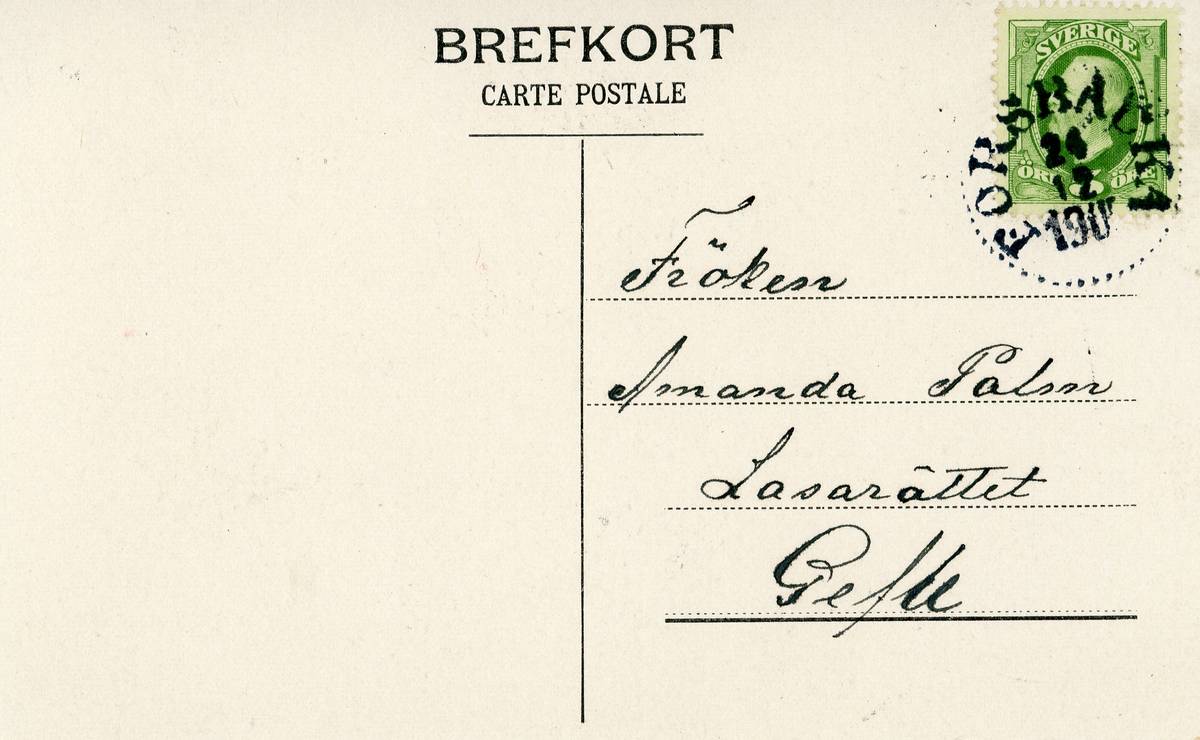 BREFKORT
CARTE POSTALE
SVERIGE
ÖRE 5 ÖRE
FORSBACKA
24
12
Fröken
Amanda Palm
Lasarättet
Gefle